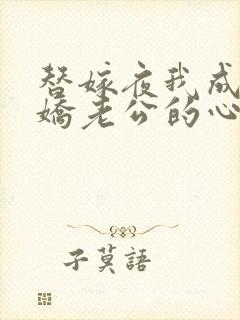 替嫁夜我成
嬌老公的心
子莫語